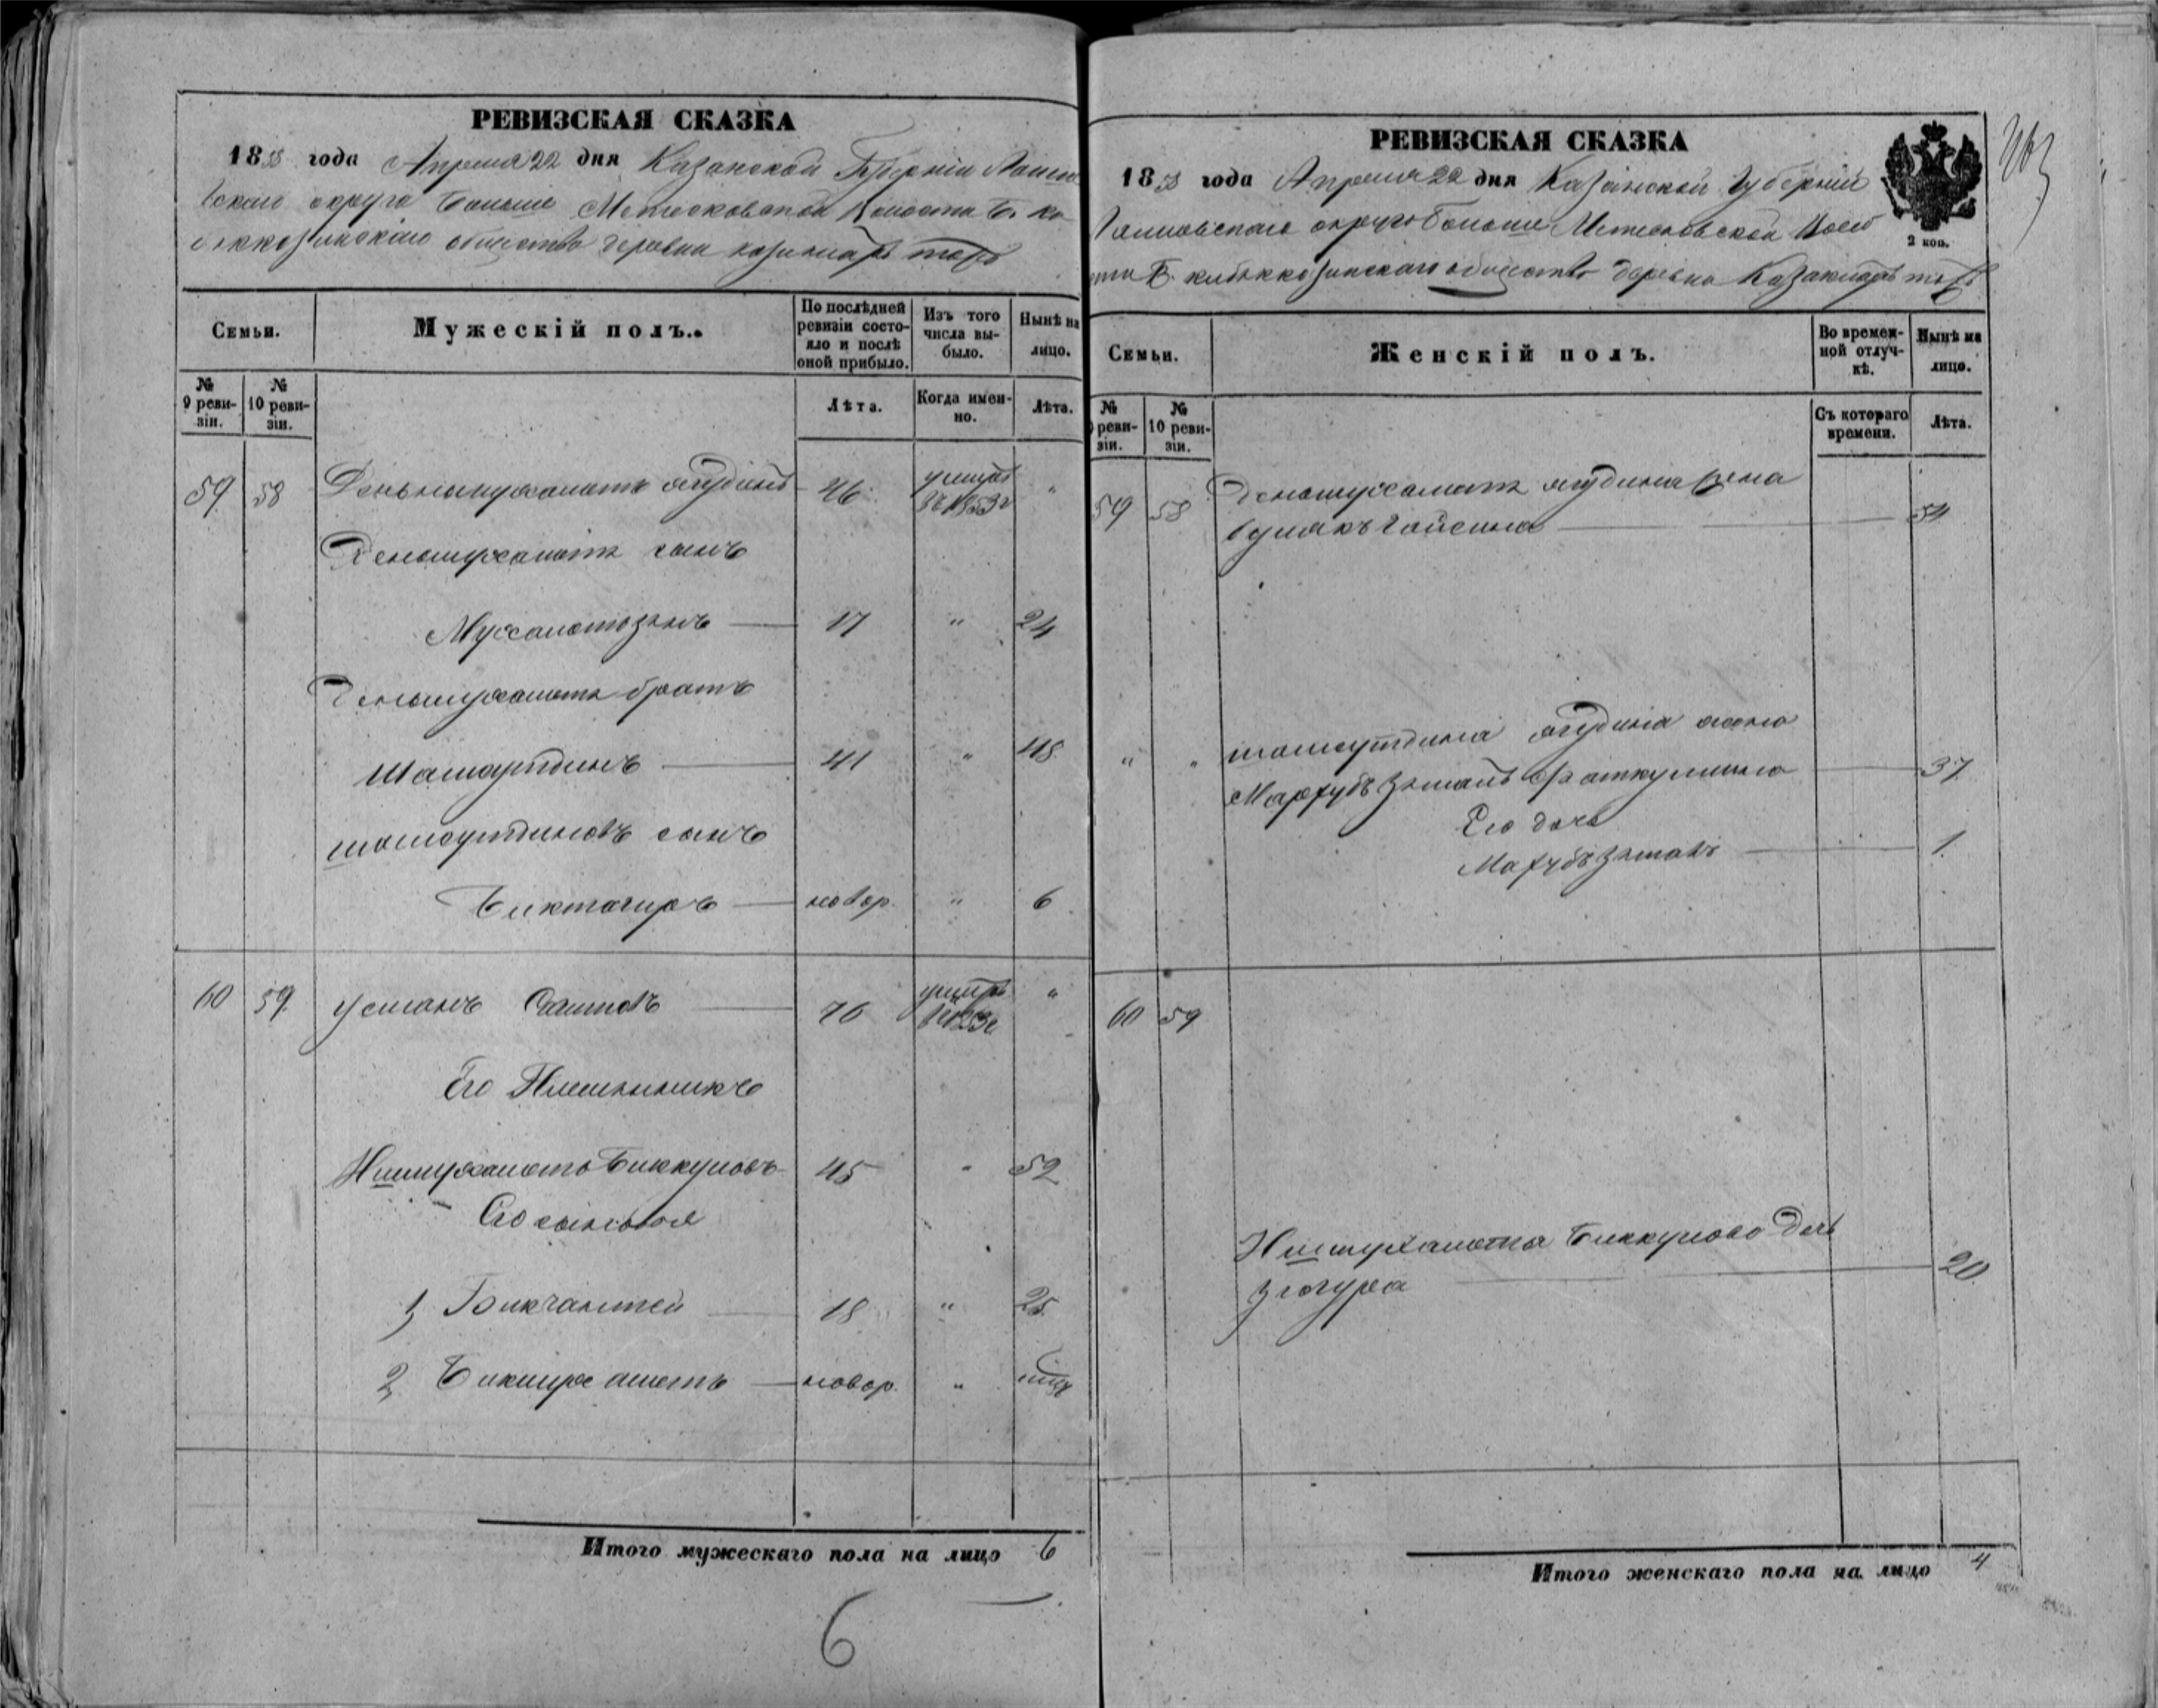 РЕВИЗСКАЯ СКАЗКА
1858 года Апреля 22 дня Казанской Губерніи Лаишев
скаго округа Больше Метесковской Волости Б. Ки
общества деревни
Семьи.
Мужескій полъ.
По послѣдней ревизіи состояло и послѣ оной прибыло.
Изъ того числа выбыло.
Нынѣ на лицо.
№ 9 ревизіи.
№ 10 ревизіи.
Лѣта.
Когда именно.
Лѣта.
59 58 Деньмухаметъ Ягудинъ 46 умеръ въ 1853 г "
Деньмухаметя сынъ
Мухаметозянъ 17 " 24
Деньмухаметя братъ
Шамаутдинъ 41 " 48
Шамаутдиновъ сынъ
Биктагиръ новор. " 6
60 59 Усманъ 76 умеръ "
Его Племянникъ
Ишмухаметъ Биккуловъ 45 " 52
Его сыновья
1 Бикчантей 18 " 25
2 Бикмухаметъ новор. "
Итого мужескаго пола на лицо 6
6
РЕВИЗСКАЯ СКАЗКА
1858 года Апреля 22 дня Казанской Губерніи
Лаишевскаго округа Больше Метесковской Воло
сти Б. общества деревни
2 коп.
Семьи.
Женскій полъ.
Во временной отлучкѣ.
Нынѣ на лицо.
ревизіи.
№ 10 ревизіи.
Съ котораго времени.
Лѣта.
59 58 Деньмухаметя Ягудина жена
Гайсина 54
" " Шамаутдина Ягудина жена
Фаткуллина 37
Его дочь
1
60 59
Ишмухаметя Биккулова дочь
Зюгура 20
Итого женскаго пола на лицо 4